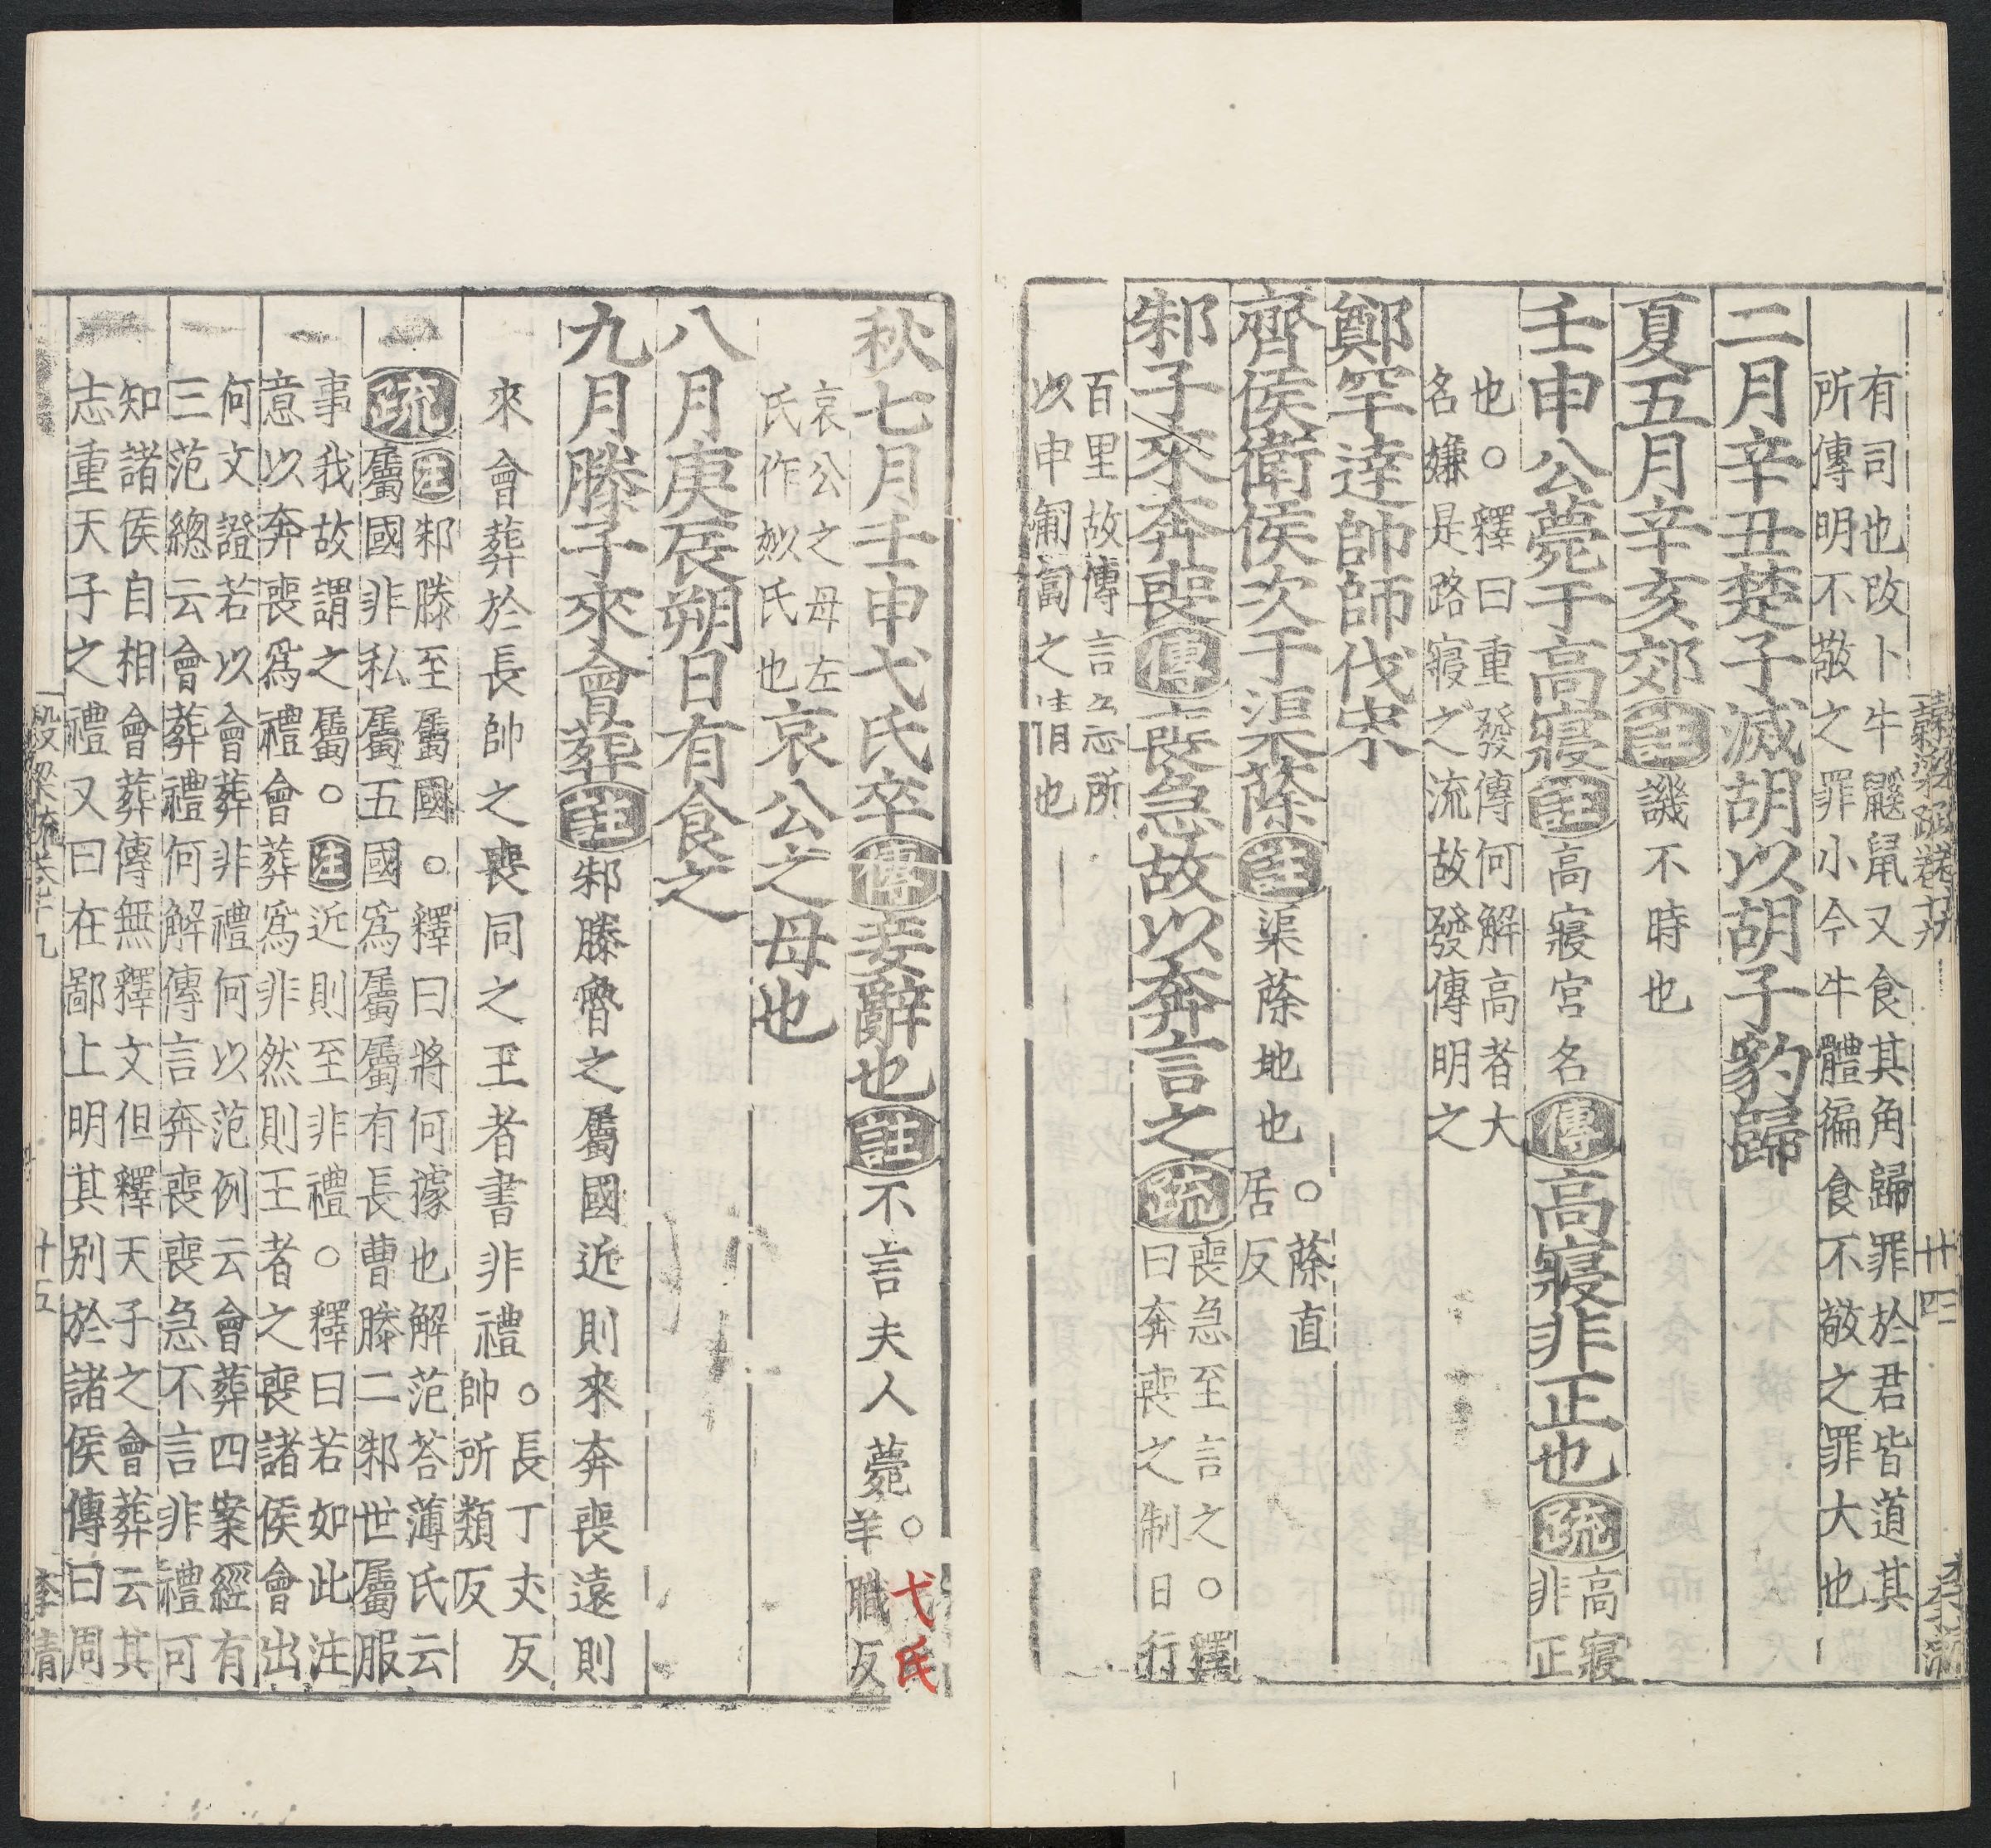 有司也改卜牛鼷鼠又食其角歸罪於君皆道其
所傳明不敬之罪小今牛體徧食不敬之罪大也
二月辛丑楚子滅胡以胡子豹歸
夏五月辛亥郊註譏不時也
壬申公薨于高寢註高寢宮名傳高寢非正也疏高寢
非正
也○釋曰重發傳何解高者大
名嫌是路寢之流故發傳明之
鄭罕達帥師伐宋
齊侯衛侯次于渠蒢註渠蒢地也○蒢直
居反
邾子來奔喪傳喪急故以奔言之疏喪急至言之○釋
曰奔喪之制日行
百里故傳言急所
以申匍匐之情也
穀梁疏卷十九
廿四
秋七月壬申弋氏卒傳妾辭也註不言夫人薨○弋氏
羊職反
哀公之母左
氏作姒氏也
哀公之母也
八月庚辰朔日有食之
九月滕子來會葬註邾滕魯之屬國近則來奔喪遠則
來會葬於長帥之喪同之王者書非禮○長丁丈反
帥所類反
疏注邾滕至屬國○釋曰將何據也解范荅薄氏云
屬國非私屬五國爲屬屬有長曹滕二邾世屬服
事我故謂之屬○注近則至非禮○釋曰若如此注
意以奔喪爲禮會葬爲非然則王者之喪諸侯會出
何文證若以會葬非禮何以范例云會葬四案經有
三范總云會葬禮何解傳言奔喪喪急不言非禮可
知諸侯自相會葬傳無釋文但釋天子之會葬云其
志重天子之禮又曰在鄙上明其别於諸侯傳曰周
穀梁疏卷十九
廿五
李清